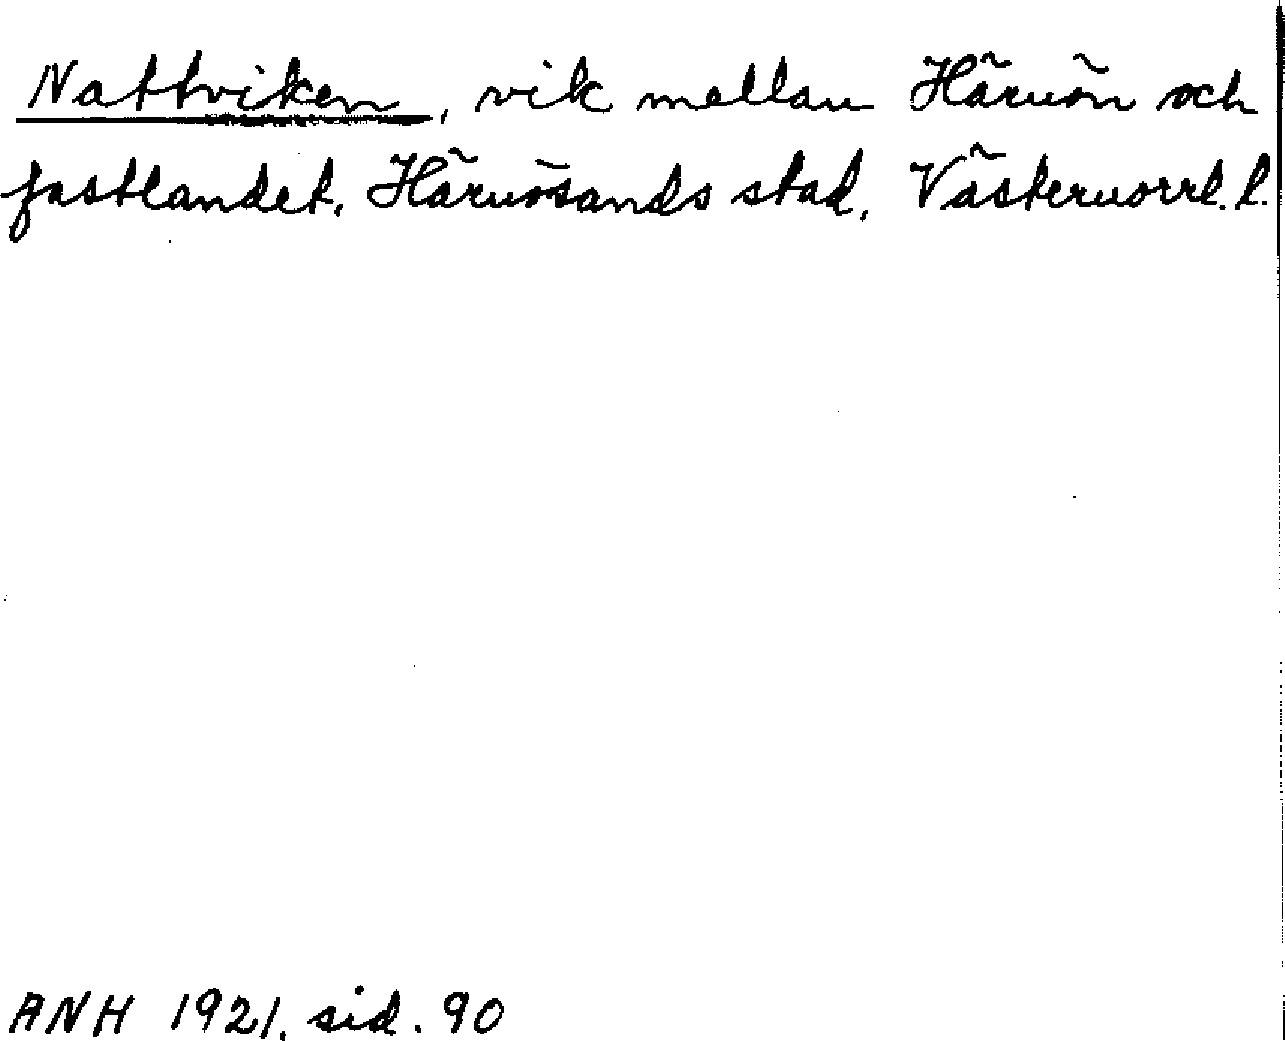 Nattviken, vik mellan Härnön och
fastlandet, Härnösands stad, Västernorrl. l.
ANH 1921, sid. 90